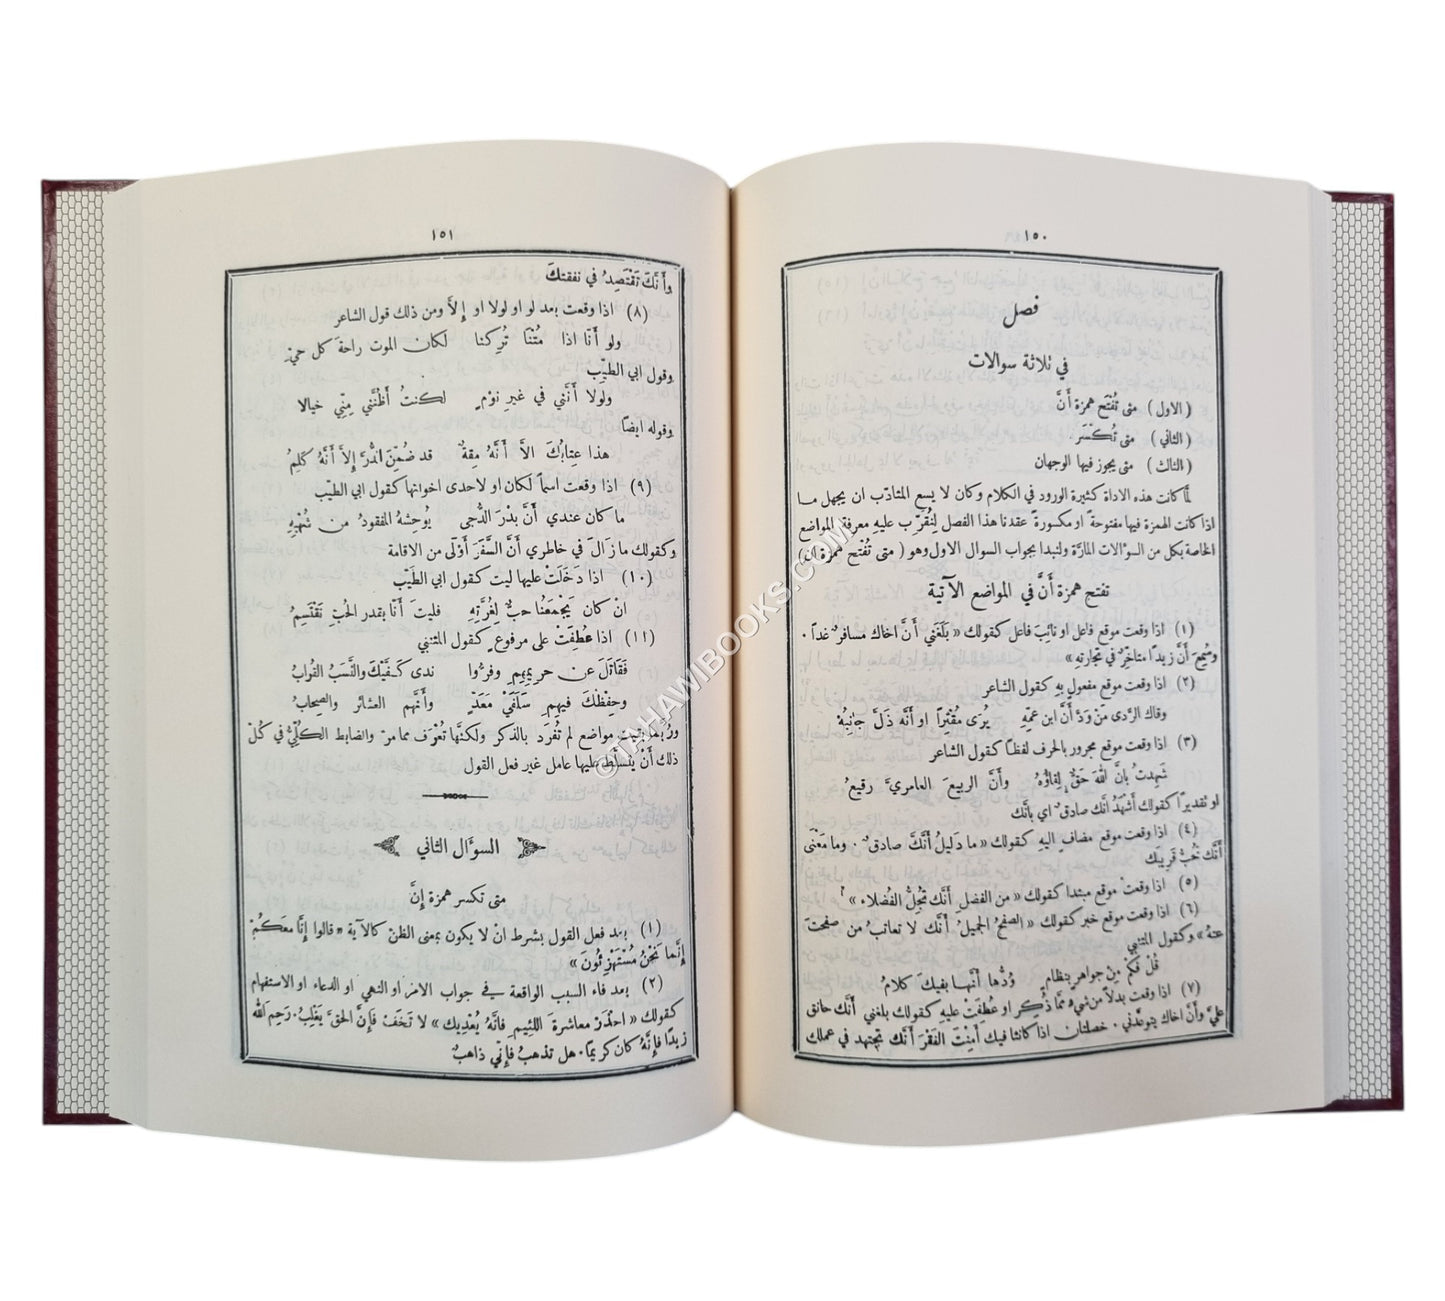 ١٥٠
فصل
في ثلاثة سوالات
(الاول) متى تُفْتَح همزة أَنَّ
(الثاني) متى تُكْسَر.
(الثالث) متى يجوز فيها الوجهان
لمَّا كانت هذه الاداة كثيرة الورود في الكلام وكان لا يسع المتادّب ان يجهل ما
اذا كانت الهمزة فيها مفتوحةً او مكسورةً عقدنا هذا الفصل لِنُقَرِّب عليهِ معرفة المواضع
الخاصة بكل من السؤالات المارَّة ولنبدا بجواب السوال الاول وهو (متى تُفْتح همزة ان)
تفتح همزة أَنَّ في المواضع الآتية
(١) اذا وقعت موقع فاعل او نائِب فاعل كقولك «بَلَغَني أَنَّ اخاك مسافرٌ غداً.
وسُمِعَ أَنَّ زيدًا متاخِّرٌ في تجارتِهِ»
(٢) اذا وقعت موقع مفعول بهِ كقول الشاعر
وقاك الرَّدى مَنْ وَدَّ أَنَّ ابن عمِّهِ يُرَى مُقْتِرًا او أَنَّه ذَلَّ جانِبُهْ
(٣) اذا وقعت موقع مجرور بالحرف لفظًا كقول الشاعر
شَهِدتُ بِانَّ اللهَ حَقٌّ لِقاؤُهُ وأَنَّ الربيعَ العامريَّ رقيعُ
او تقديرًا كقولك أَشْهَدُ انَّك صادقٌ اي بأَنَّك
(٤) اذا وقعت موقع مضاف اليهِ كقولك «ما دَليلُ أَنَّكَ صادقٌ. وما مَعْنَى
أَنَّك تُحُبُّ قَرِيبَك
(٥) اذا وقعتْ موقع مبتدا كقولك «من الفضلِ أَنَّك تُجِلُّ الفُضلاء»
(٦) اذا وقعت موقع خبر كقولك «الصفحُ الجميلُ أَنَّك لا تعاتبُ من صفحتَ
عنهُ» وكقول المتنبي
قُلْ فَكَمْ مِنْ جواهرٍ بنظامٍ وُدُّها أَنَّها بفيكَ كلامُ
(٧) اذا وقعت بدلًا من شيءٍ ممَّا ذُكِر او عُطِفَتْ عليهِ كقولك بلغني أَنَّك حانق
عليَّ وأَنَّ اخاك يتوعَّدني. خصلتان اذا كانتا فيك أَمِنْتَ الفَقْرَ أَنَّك تجتهد في عملك
١٥١
وأَنَّكَ تَقْتَصِدُ في نفقتكَ
(٨) اذا وقعت بعد لو او لولا او إِلاَّ ومن ذلك قول الشاعر
ولو أَنَّا اذا مُتْنا تُرِكنا لكان الموت راحةَ كل حيِّ
وقول ابي الطيّب
ولولا أَنَّني في غيرِ نوْمٍ لكنتُ أَظُنُّني مِنّي خيالا
وقوله ايضًا
هذا عِتابُكَ الاَّ أَنَّهُ مِقَةٌ قد ضُمِّنَ الدُّرَّ إِلاَّ أَنَّهُ كَلِمُ
(٩) اذا وقعت اسمًا لكان او لاحدى اخواتها كقول ابي الطيّب
ما كان عندي أَنَّ بدْرَ الدُّجى يُوحِشهُ المفقودُ من شُهْبِهِ
وكقولك ما زالَ في خاطري أَنَّ السَّفَرَ أَوْلَى من الاقامة
(١٠) اذا دَخَلَتْ عليها ليت كقول ابي الطيَّب
انْ كان يَجْمَعُنا حبٌّ لِغُرَّتِهِ فليتَ أَنَّا بقدرِ الحُبِّ نَقْتَسِمُ
(١١) اذا عُطِفَتْ على مرفوعٍ كقول المتنبي
فَقاتَلَ عن حريمِهِم وفرُّوا ندى كَفَّيْكَ والنَّسَبُ القُرابُ
وحِفظُكَ فيهِمِ سَلَفَيْ مَعَدٍّ وأَنَّهم العشائر والصِحابُ
ورُبَّما بقيت مواضع لم تُفْرَد بالذكر ولكنَّها تُعْرَف مما مرَّ والضابط الكُلِّيُّ في كُلّ
ذلك أَنْ يتسلَّط عليها عامل غير فعل القول
السؤال الثاني
متى تكسر همزة إِنَّ
(١) بعد فعل القول بشرط انْ لا يكون بمعنى الظنّ كالآية «قالوا إِنَّا مَعَكُمْ
إِنَّما نَحْنُ مُسْتَهْزِئُونَ»
(٢) بعد فاء السبب الواقعة في جواب الامر او النهي او الدعاء او الاستفهام
كقولك «احْذَرْ معاشرةَ اللئيم فانَّهُ يُعْدِيك» لا تَخَفْ فإِنَّ الحقَّ يَغْلِبُ. رَحِم اللهُ
زيدًا فإِنَّهُ كان كريمًا. هل تذهبُ فإِنّي ذاهبٌ
©TAHAWIBOOKS.COM